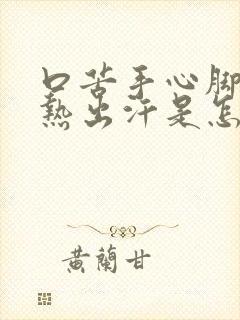 口苦手心脚
热出汗是怎
黄蘭甘